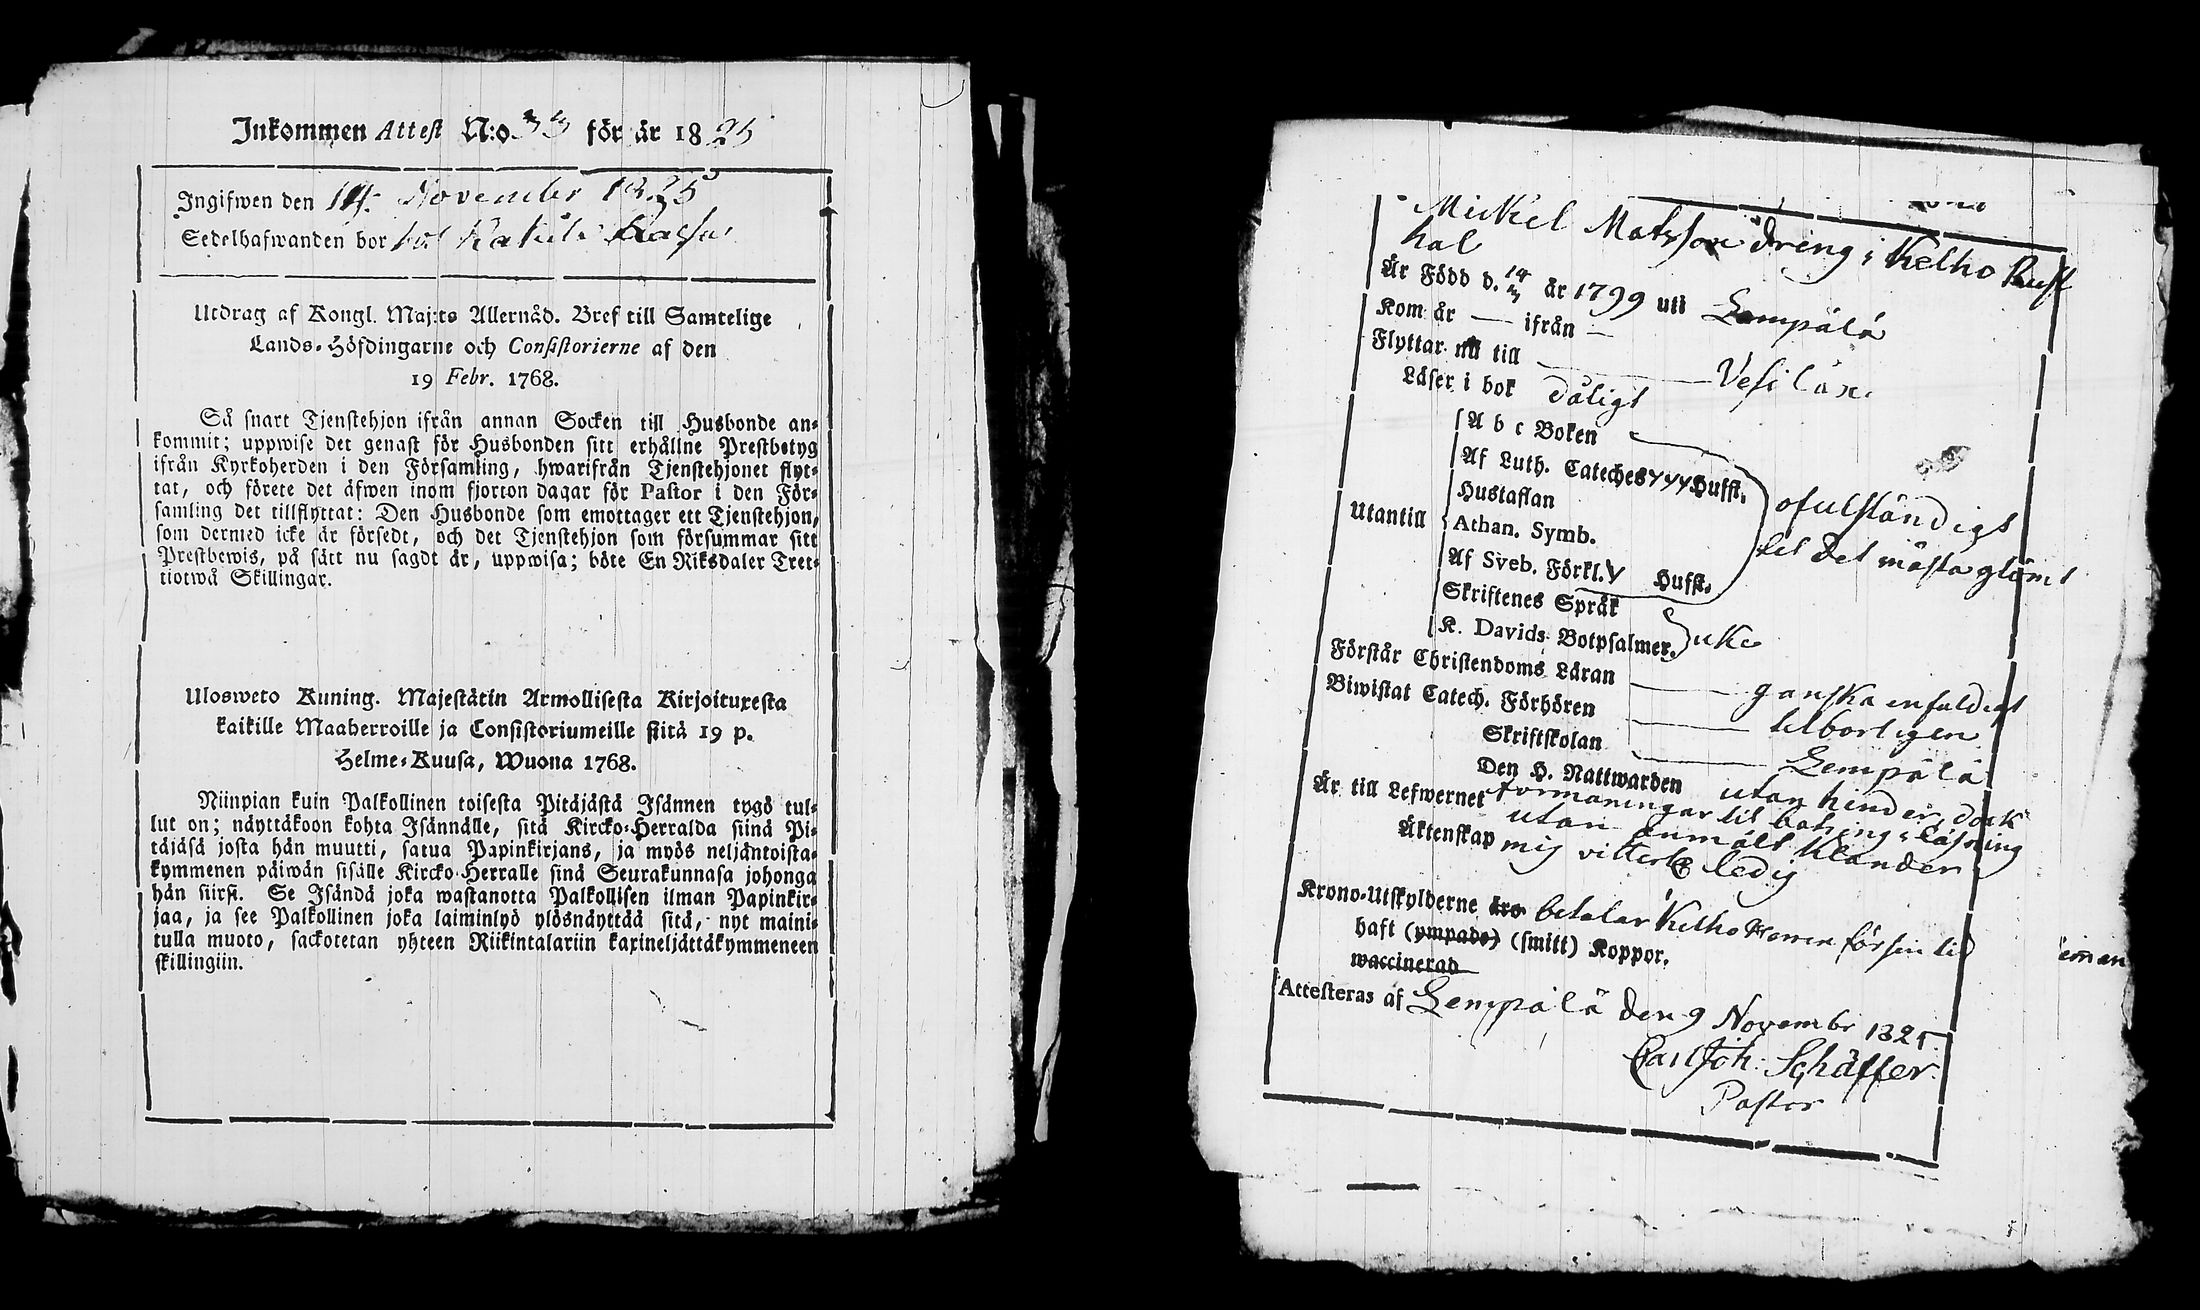 Inkommen Attest N:o 33 för år 1825
Ingifwen den 14. November 1825
Sedelhafwanden bor
Utdrag af Kongl. Maj:ts Allernåd. Bref till Samtelige
Lands-Höfdingarne och Consistorierne af den
19 Febr. 1768.
Så snart Tjenstehjon ifrån annan Socken till Husbonde an-
kommit; uppwise det genast för Husbonden sitt erhållne Prestbetyg
ifrån Kyrkoherden i den Församling, hwarifrån Tjenstehjonet flyt-
tat, och förete det äfwen inom fjorton dagar för Pastor i den För-
samling det tillflyttat: Den Husbonde som emottager ett Tjenstehjon,
som dermed icke är försedt, och det Tjenstehjon som försummar sitt
Prestbewis, på sätt nu sagdt är, uppwisa; böte En Riksdaler Tret-
tiotwå Skillingar.
Ulosweto Kuning. Majestätin Armollisesta Kirjoituxesta
kaikille Maaherroille ja Consistoriumeille siitä 19 p.
Helme-Kuusa, Wuona 1768.
Niinpian kuin Palkollinen toisesta Pitäjästä Isännen tygö tul-
lut on; näyttäkoon kohta Isännälle, sitä Kircko-Herralda siinä Pi-
täjäsä josta hän muutti, satua Papinkirjans, ja myös neljäntoista-
kymmenen päiwän sisälle Kircko-Herralle sinä Seurakunnasa johonga
hän siirsi. Se Isändä joka wastanotta Palkollisen ilman Papinkir-
jaa, ja see Palkollinen joka laiminlyö ylösnäyttää sitä, nyt maini-
tulla muoto, sackotetan yhteen Riikintalariin kaxineljättäkymmeneen
skillingiin.
Mickel Matsson dreng i Kelho Rust
hal
År Född d. 14/3 år 1799 uti Lempälä
Kom år — ifrån —
Flyttar nu till — Vesilax.
Läser i bok dåligt
A b c Boken
Af Luth. Cateches Y Y Y Hufst.
Hustaflan
Utantill Athan. Symb. ofulständigt
til det mästa glömt
Af Sveb. Förkl. Y Hufst.
Skriftenes Språk
K. Davids Botpsalmer. icke
Förstår Christendoms Läran — ganska enfaldigt
Biwistat Catech. Förhören — tilbörligen
Skriftskolan — Lempälä
Den H. Nattwarden utan hinder, dock
Är till Lefwernet förmaningar til bättring i läsning
utan anmält klander
Äktenskap mig vitterl. ledig
Krono-Utskylderne äro betalar Kelho försin tid
haft (ympade) (smitt) Koppor.
waccinerad
Attesteras af Lempälä den 9 Novembr 1825
Carl Joh. Schäffer.
Pastor